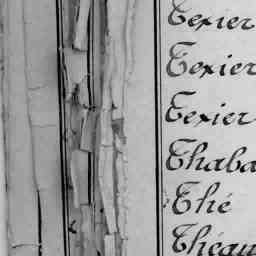 Texier
Texier
Texier
Thaba
Thé
Théau